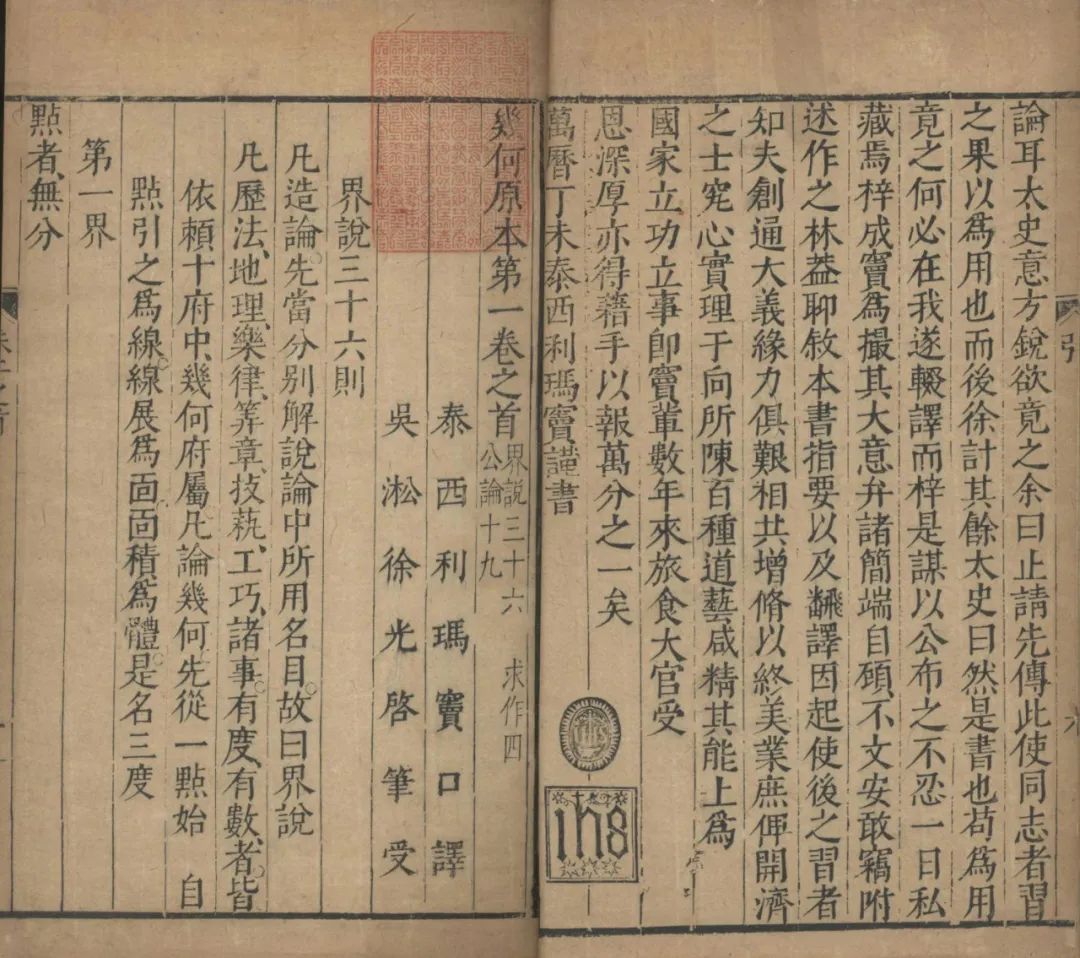 論耳太史意方銳欲竟之余曰止請先傳此使同志者習
之果以爲用也而後徐計其餘太史曰然是書也苟爲用
竟之何必在我遂輟譯而梓是謀以公布之不忍一日私
藏焉梓成竇爲撮其大意弁諸簡端自顧不文安敢竊附
述作之林葢聊敘本書指要以及翻譯因起使後之習者
知夫創通大義緣力俱艱相共增脩以終美業庶俾開濟
之士究心實理于向所陳百種道藝咸精其能上爲
國家立功立事卽竇輩數年來旅食大官受
恩深厚亦得藉手以報萬分之一矣
萬曆丁未泰西利瑪竇謹書
ihs
引
幾何原本第一卷之首界說三十六 求作四
公論十九
泰西利瑪竇口譯
吳淞徐光啓筆受
界說三十六則
凡造論先當分別解說論中所用名目故曰界說
凡歷法、地理、樂律、筭章、技藝、工巧、諸事、有度、有數、者、皆
依賴十府中、幾何府屬。凡論幾何先從一點始 自
點引之爲線線展爲面面積爲體是名三度
第一界
點者、無分